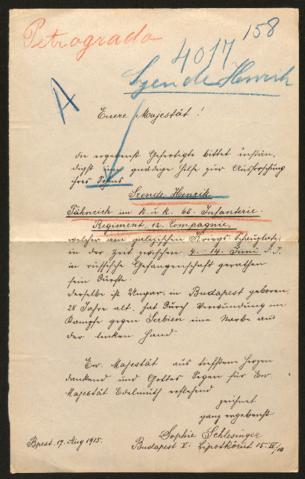 Petrograda
4017 158
Szende Henrik
A
Euere Majestät!
die ergebenst Gefertigte bittet instän-
digst um gnädige Hilfe zur Ausforschung
ihres Sohns
Szende Henrik
Fähnrich im k. u. k. 66. Infanterie-
Regiment, 12. Compagnie,
welcher am galizischen Kriegs Schauplatz,
in der Zeit zwischen 4.-14. Juni d. J.
in russische Gefangenschaft gerathen
sein dürfte.
derselbe ist Ungar, in Budapest geboren,
28 Jahre alt, hat durch Verwundung im
Kampfe gegen Serbien eine Narbe auf
der linken Hand.
Ew. Majestät aus tiefstem Herzen
dankend und Gottes Segen für Ew.
Majestät Edelmuth erflehend
zeichnet
ganz ergebenst
Sophie Schlesinger
Bpest. 17. Aug 1915. Budapest V. Lipótkörút 15